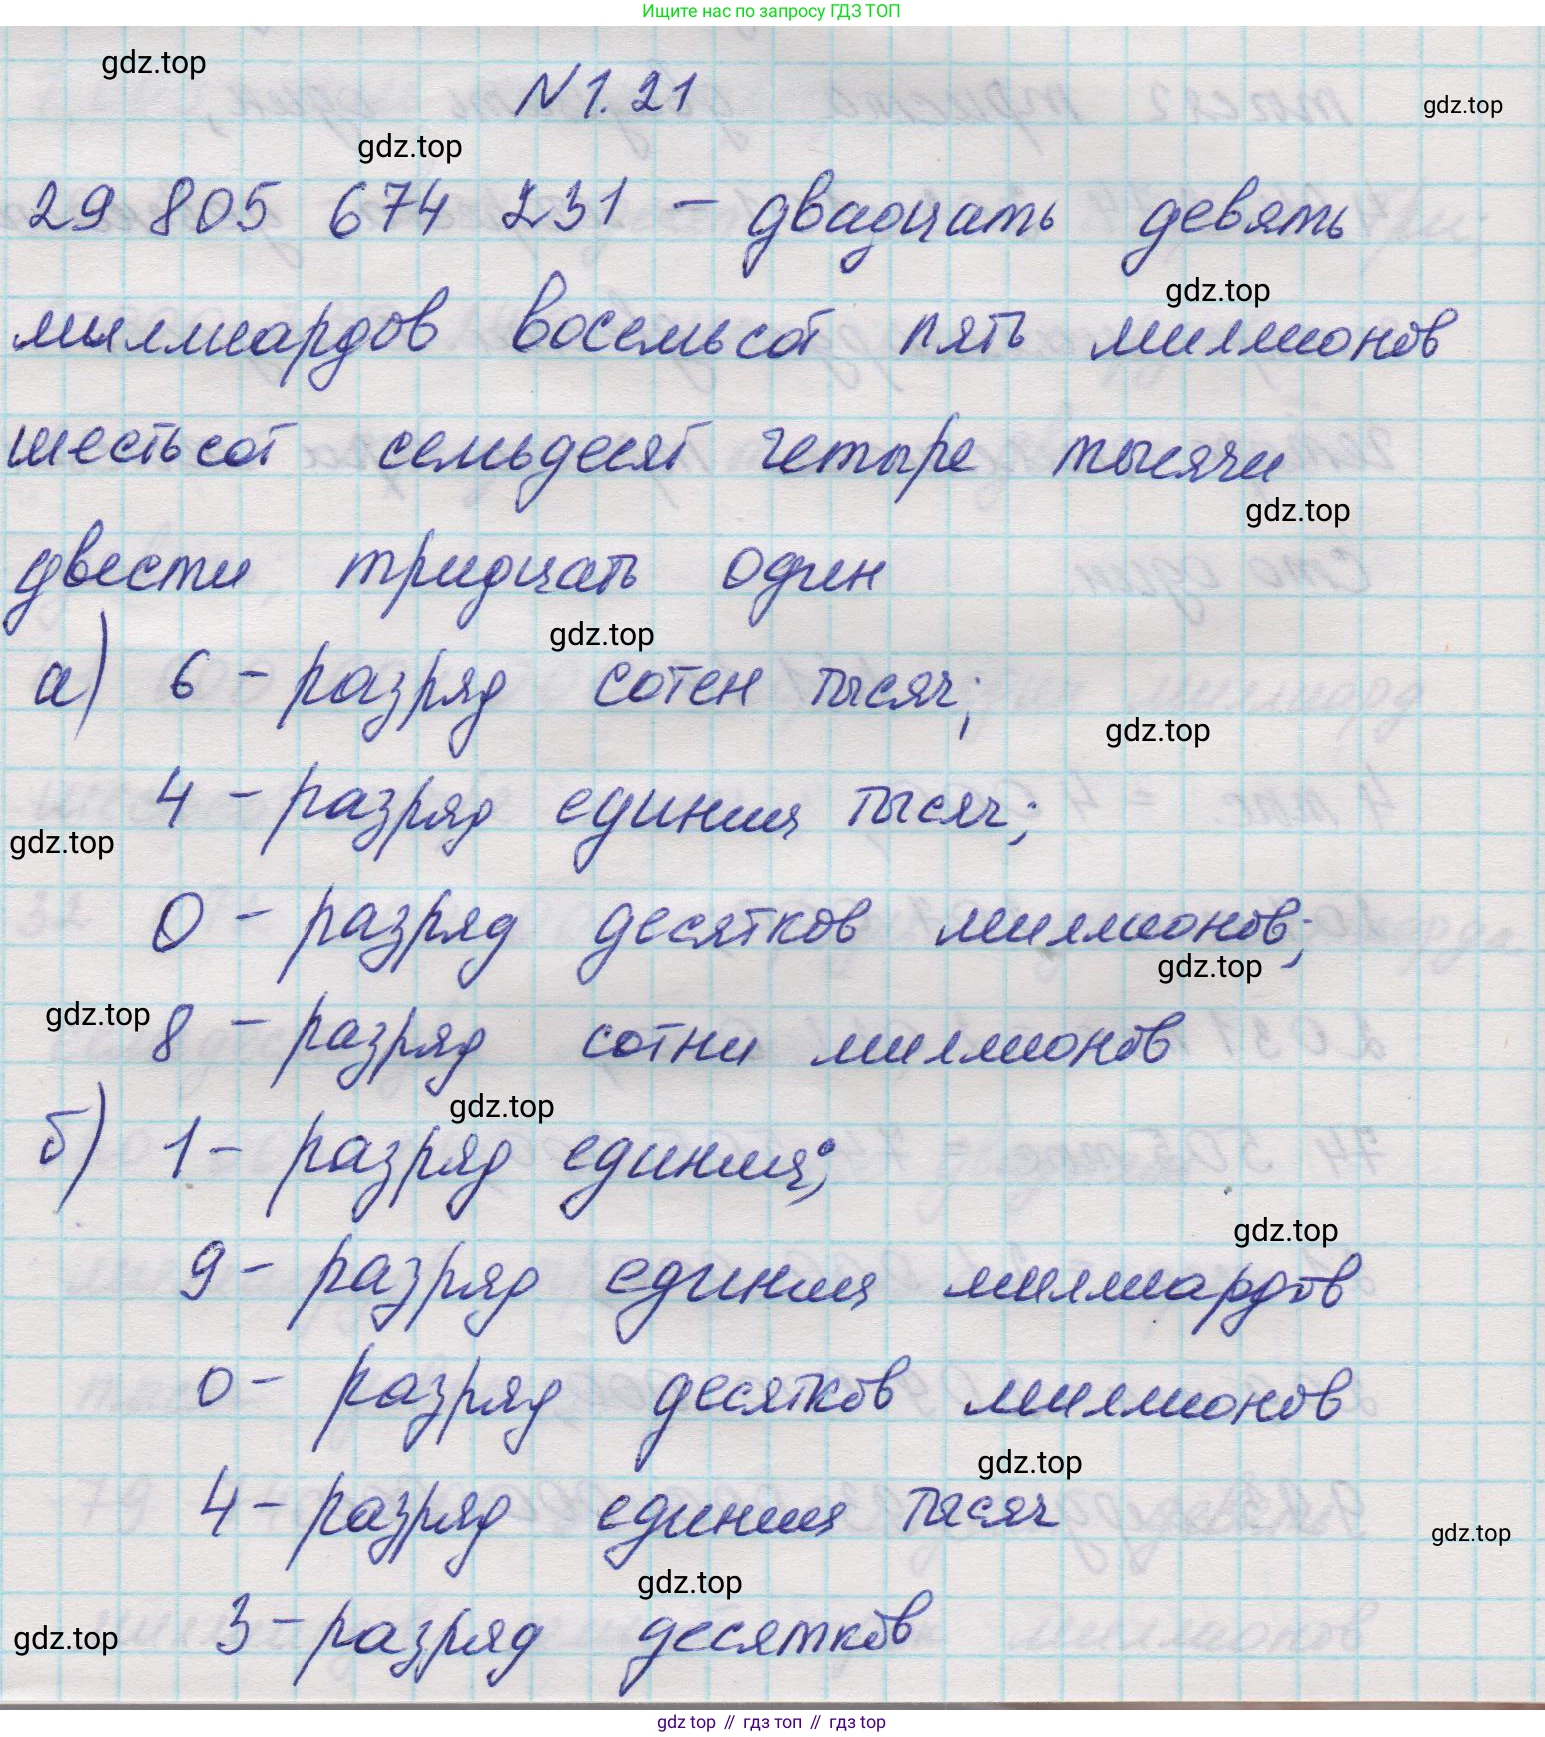 Ищите нас по запросу ГДЗ ТОП
gdz.top
N 1.21
gdz.top
gdz.top
29 805 674 231 – двадцать девять
gdz.top
миллиардов восемьсот пять миллионов
шестьсот семьдесят четыре тысячи
gdz.top
двести тридцать один
gdz.top
а) 6 – разряд сотен тысяч;
gdz.top
4 – разряд единиц тысяч;
gdz.top
0 – разряд десятков миллионов;
gdz.top
gdz.top
8 – разряд сотни миллионов
gdz.top
б) 1 – разряд единиц;
gdz.top
9 – разряд единиц миллиардов
0 – разряд десятков миллионов
gdz.top
4 – разряд единиц тысяч
gdz.top
gdz.top
3 – разряд десятков
gdz.top
gdz top // гдз топ // gdz.top